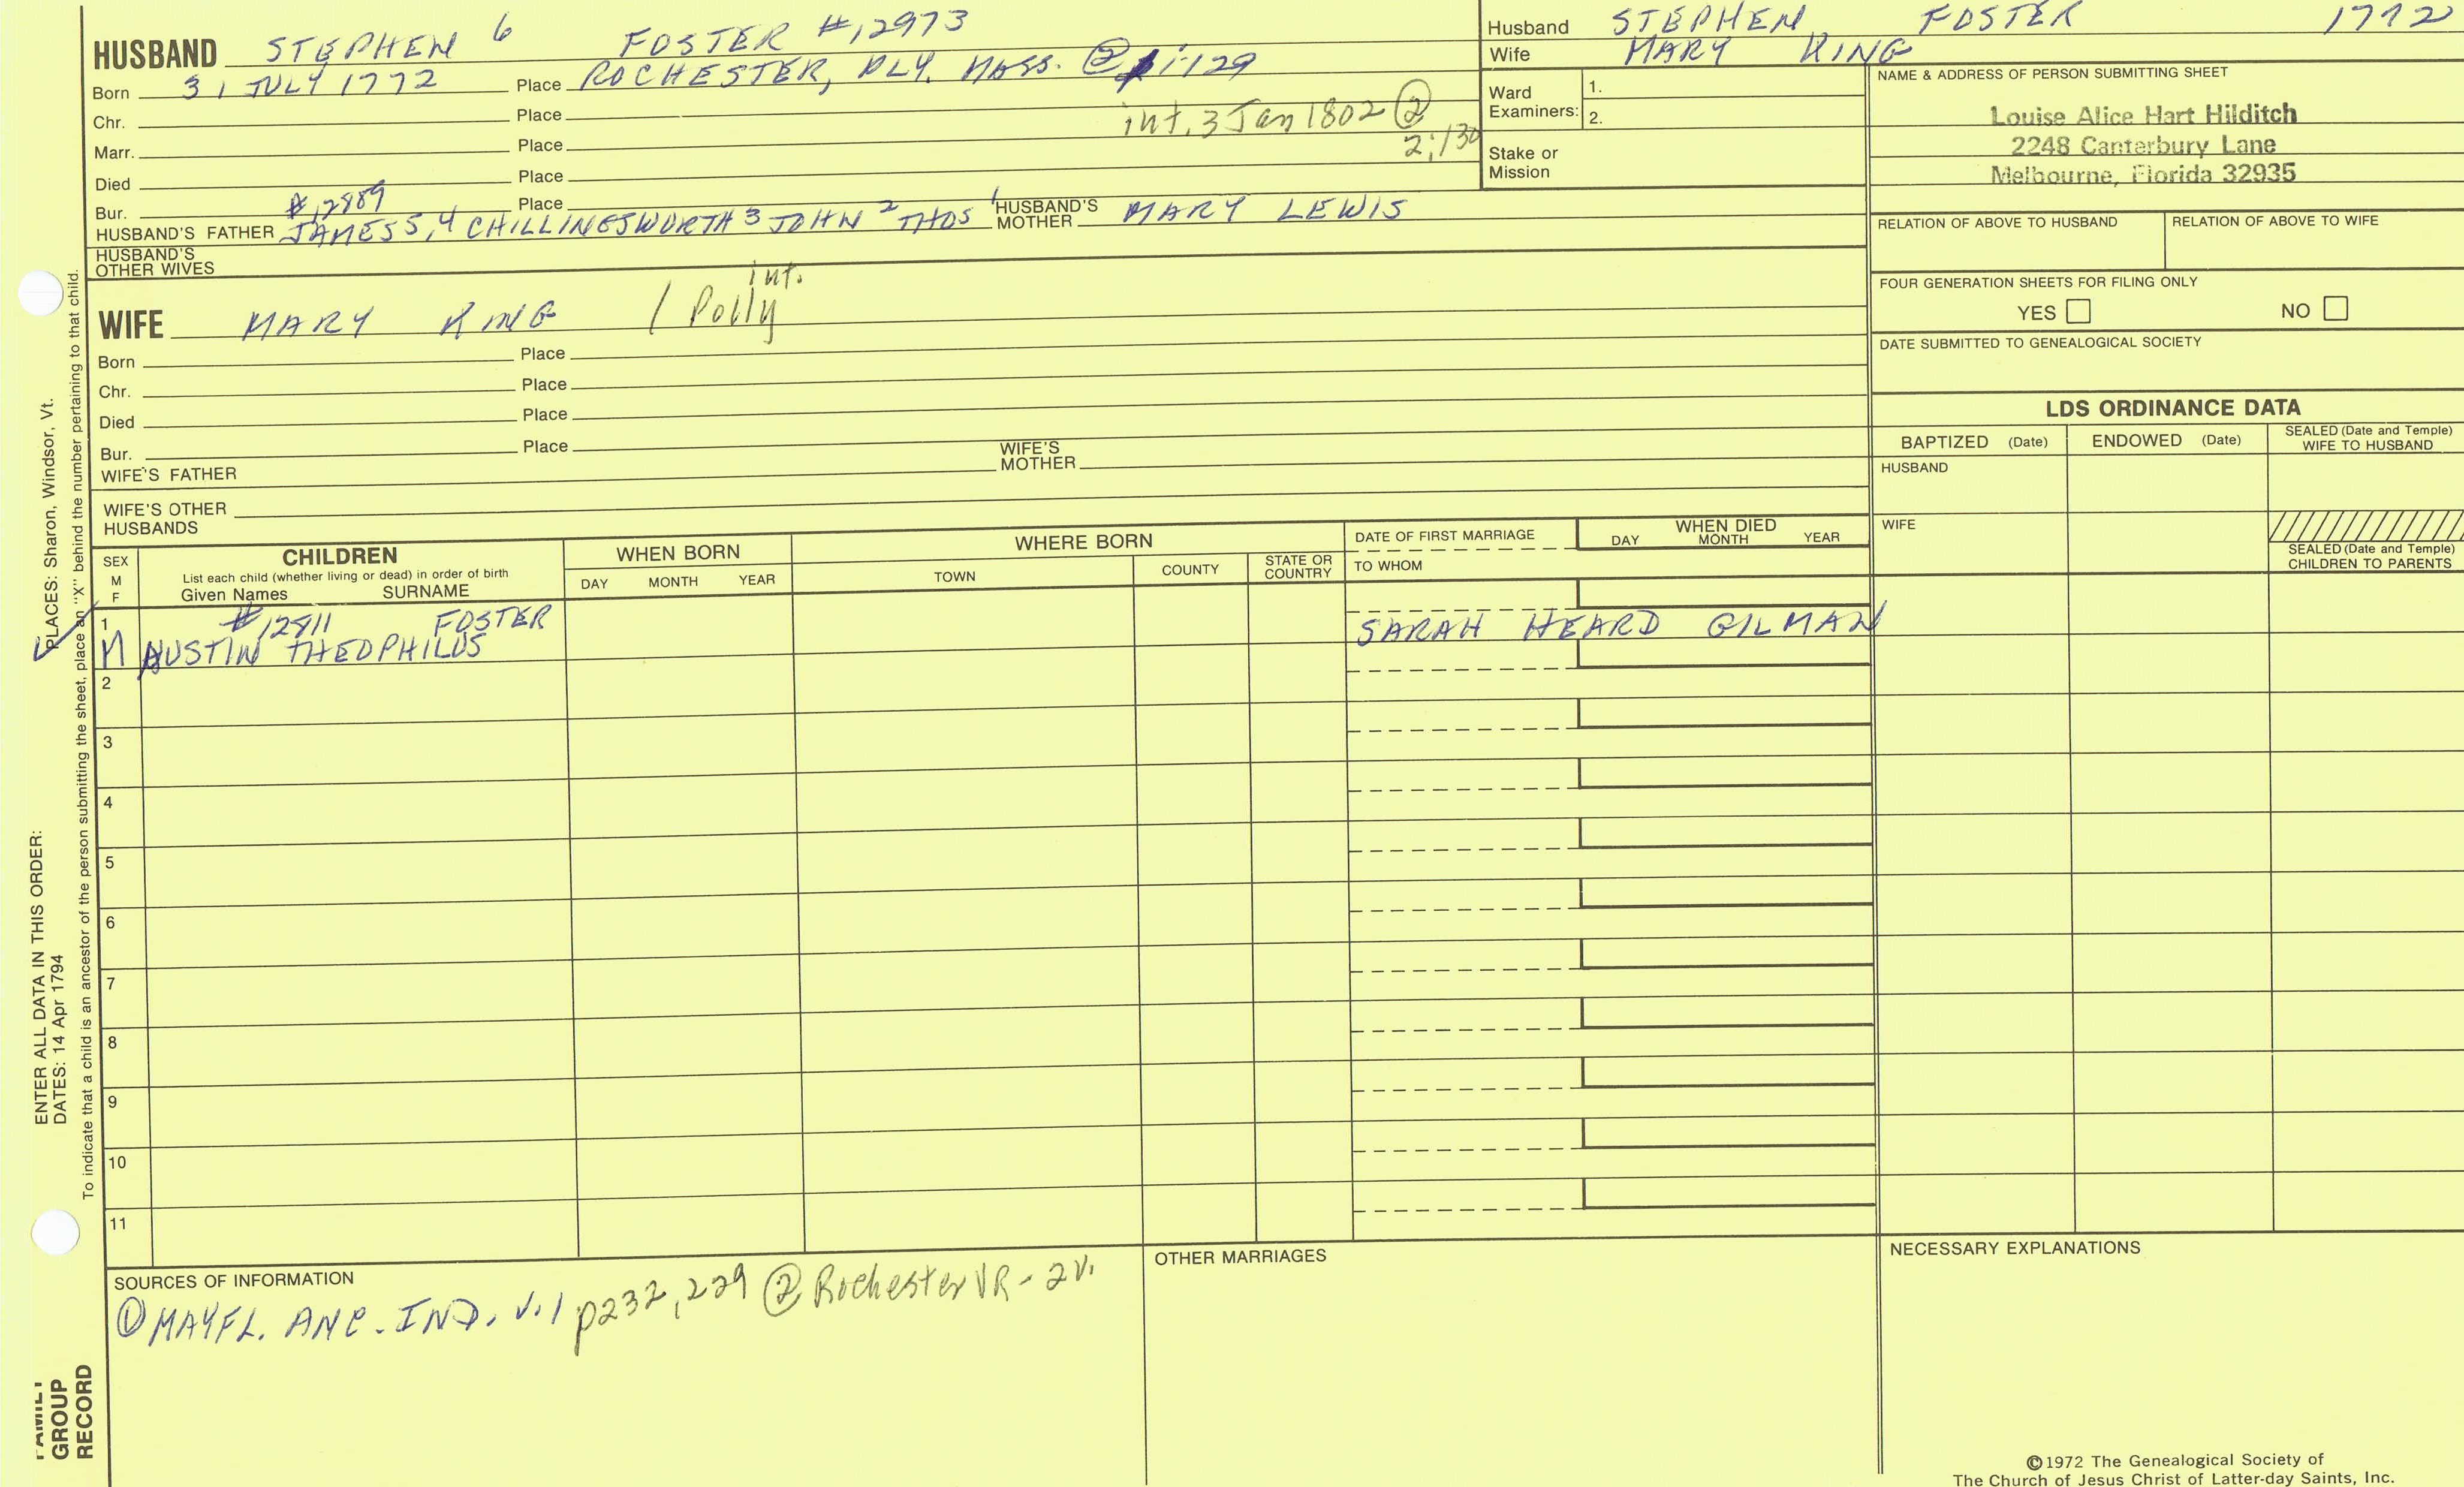 HUSBAND STEPHEN 6 FOSTER #12973
Born 31 JULY 1772 Place ROCHESTER, PLY. MASS. @ 1:129
Chr. Place int. 3 Jan 1802 ②
Marr. Place 2:130
Died Place
Bur. #12989 Place
HUSBAND'S FATHER JAMES 5, 4 CHILLINGSWORTH 3 JOHN 2 THOS 1 HUSBAND'S MOTHER MARY LEWIS
HUSBAND'S OTHER WIVES
int.
WIFE MARY KING / Polly
Born Place
Chr. Place
Died Place
Bur. Place
WIFE'S FATHER WIFE'S MOTHER
WIFE'S OTHER HUSBANDS
Husband STEPHEN FOSTER 1772
Wife MARY KING
Ward Examiners: 1.
2.
Stake or Mission
NAME & ADDRESS OF PERSON SUBMITTING SHEET
Louise Alice Hart Hilditch
2248 Canterbury Lane
Melbourne, Florida 32935
RELATION OF ABOVE TO HUSBAND RELATION OF ABOVE TO WIFE
FOUR GENERATION SHEETS FOR FILING ONLY
YES NO
DATE SUBMITTED TO GENEALOGICAL SOCIETY
LDS ORDINANCE DATA
BAPTIZED (Date) ENDOWED (Date) SEALED (Date and Temple) WIFE TO HUSBAND
HUSBAND
WIFE
SEALED (Date and Temple) CHILDREN TO PARENTS
SEX M F
CHILDREN
List each child (whether living or dead) in order of birth
Given Names SURNAME
WHEN BORN
DAY MONTH YEAR
WHERE BORN
TOWN COUNTY STATE OR COUNTRY
DATE OF FIRST MARRIAGE
TO WHOM
WHEN DIED
DAY MONTH YEAR
1 FOSTER
M AUSTIN THEOPHILUS SARAH HEARD GILMAN
2
3
4
5
6
7
8
9
10
11
SOURCES OF INFORMATION
① MAYFL. ANC. IND. v.1 p232, 229 ② Rochester VR - 2v.
OTHER MARRIAGES
NECESSARY EXPLANATIONS
©1972 The Genealogical Society of
The Church of Jesus Christ of Latter-day Saints, Inc.
ENTER ALL DATA IN THIS ORDER:
DATES: 14 Apr 1794
PLACES: Sharon, Windsor, Vt.
To indicate that a child is an ancestor of the person submitting the sheet, place an "X" behind the number pertaining to that child.
FAMILY
GROUP
RECORD